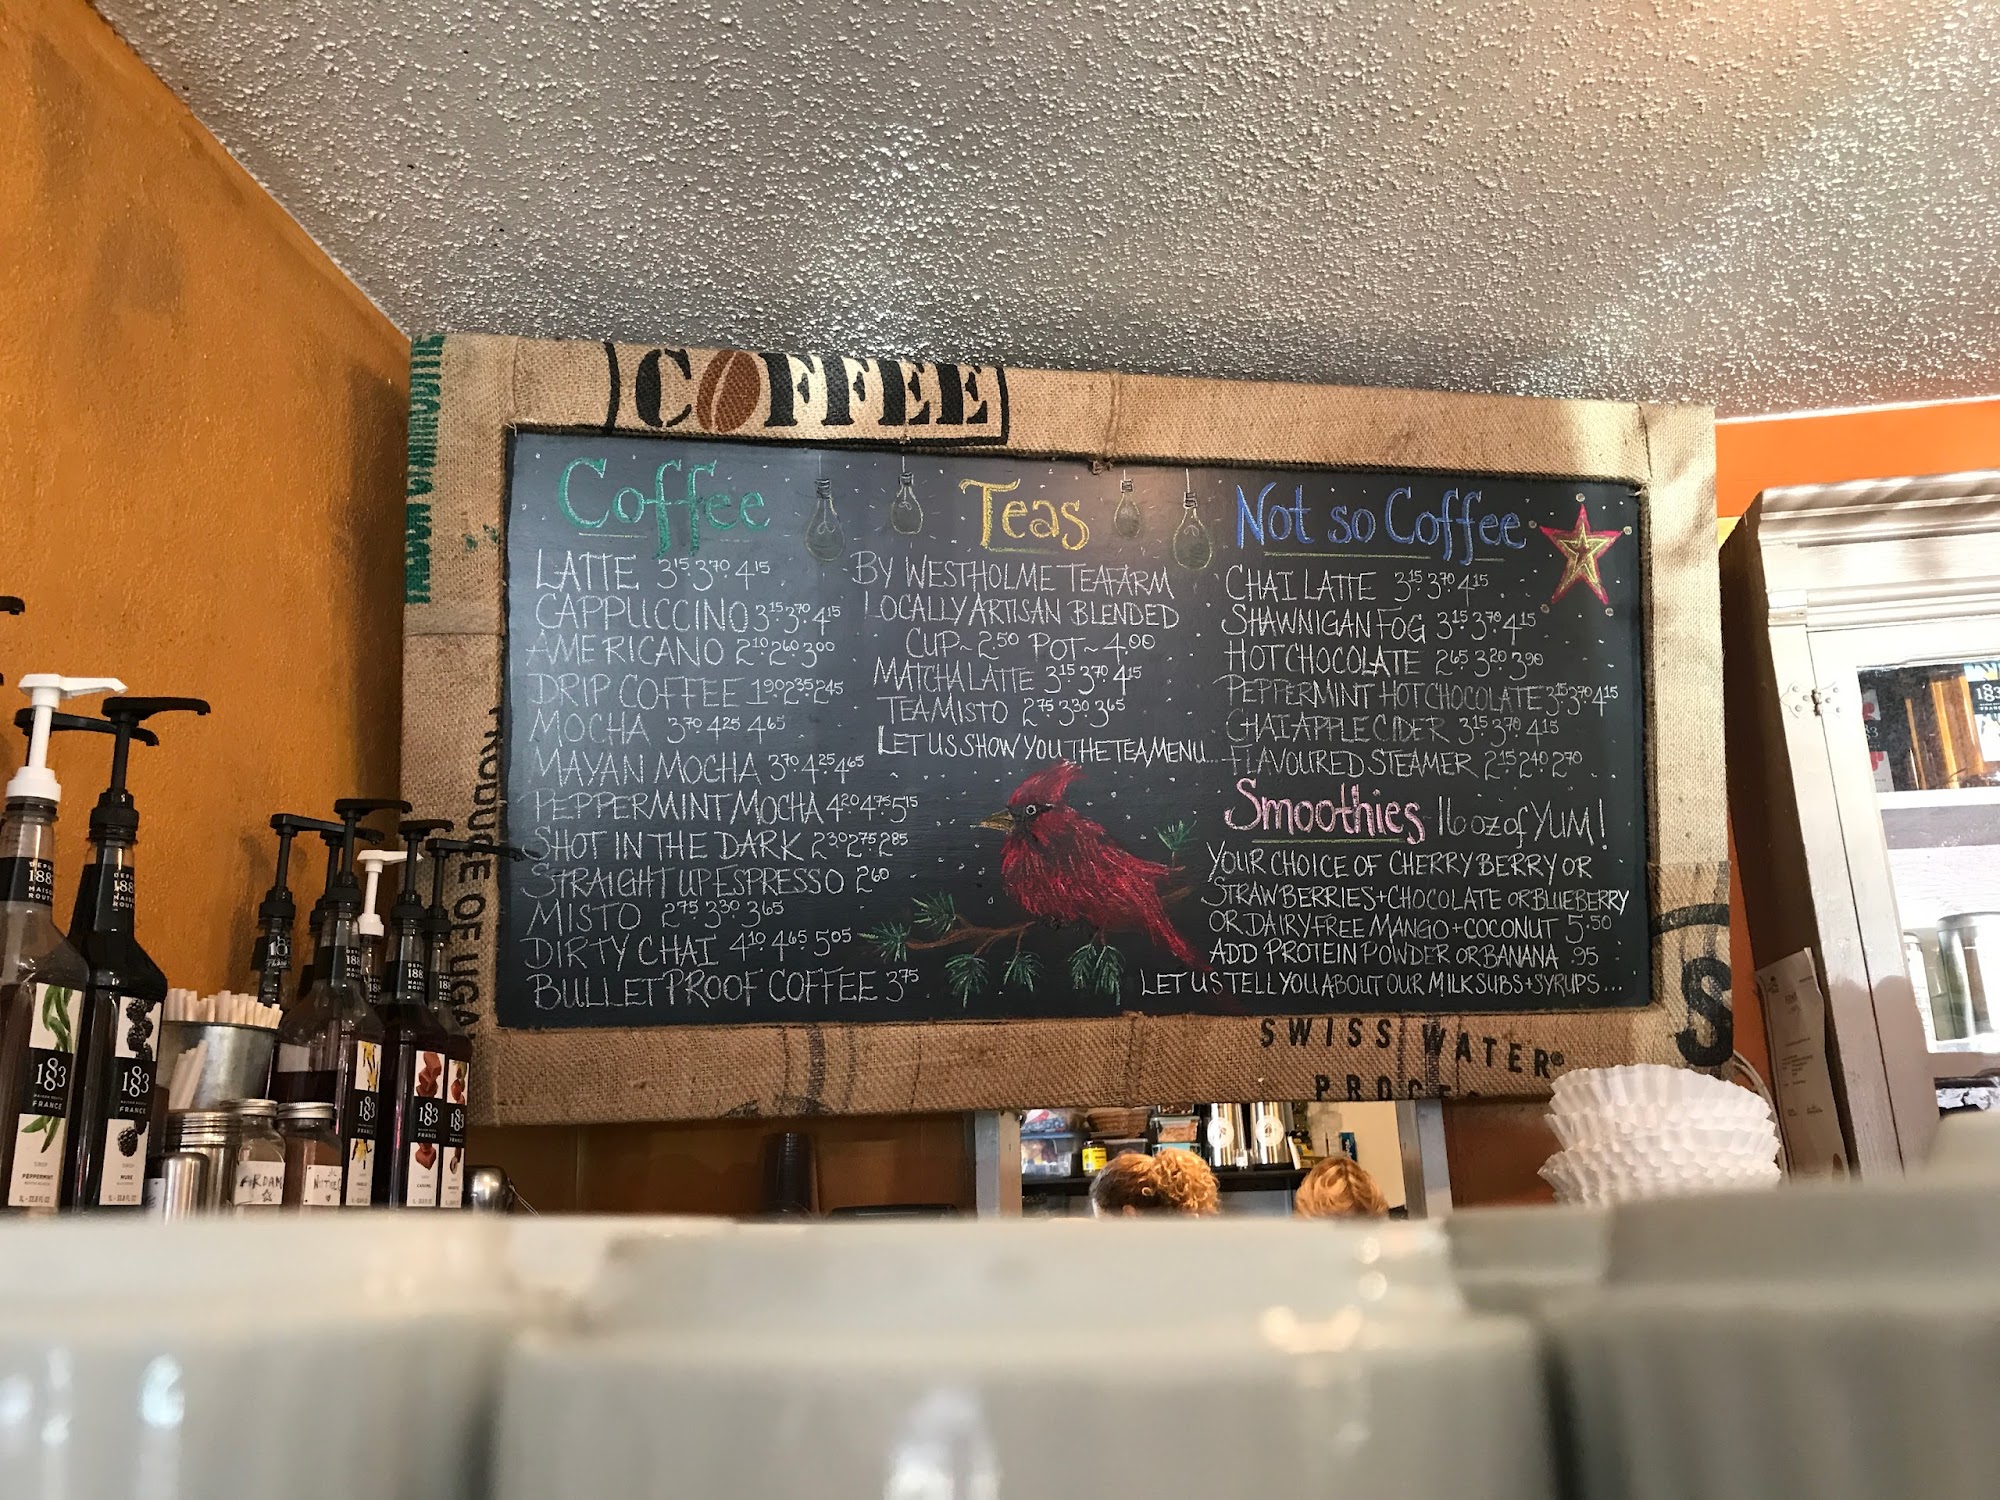 COFFEE
Coffee
LATTE 3.15 3.70 4.15
CAPPUCCINO 3.15 3.70 4.15
AMERICANO 2.10 2.60 3.00
DRIP COFFEE 1.90 2.35 2.45
MOCHA 3.70 4.25 4.65
MAYAN MOCHA 3.70 4.25 4.65
PEPPERMINT MOCHA 4.20 4.75 5.15
SHOT IN THE DARK 2.30 2.75 2.85
STRAIGHT UP ESPRESSO 2.60
MISTO 2.75 3.30 3.65
DIRTY CHAI 4.10 4.65 5.05
BULLETPROOF COFFEE 3.75
Teas
BY WESTHOLME TEA FARM
LOCALLY ARTISAN BLENDED
CUP~2.50 POT~4.00
MATCHA LATTE 3.15 3.70 4.15
TEA MISTO 2.75 3.30 3.65
LET US SHOW YOU THE TEA MENU...
Not so Coffee
CHAI LATTE 3.15 3.70 4.15
SHAWNIGAN FOG 3.15 3.70 4.15
HOT CHOCOLATE 2.65 3.20 3.90
PEPPERMINT HOT CHOCOLATE 3.15 3.70 4.15
CHAI APPLE CIDER 3.15 3.70 4.15
FLAVOURED STEAMER 2.15 2.40 2.70
Smoothies 16 oz of YUM!
YOUR CHOICE OF CHERRY BERRY OR
STRAWBERRIES + CHOCOLATE OR BLUEBERRY
OR DAIRY FREE MANGO + COCONUT 5.50
ADD PROTEIN POWDER OR BANANA .95
LET US TELL YOU ABOUT OUR MILK SUBS + SYRUPS...
PRODUCE OF UGA
SWISS WATER®
PROCE
S
1883
FRANCE
PEPPERMINT
1883
FRANCE
1883
FRANCE
1883
FRANCE
CARAMEL
1883
FRANCE